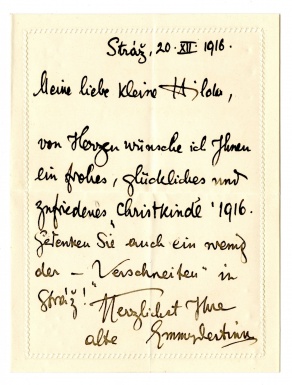 Stráž, 20. XII 1916.
Meine liebe kleine Hilda,
von Herzen wünsche ich Ihnen
ein frohes, glückliches und
zufriedenes „Christkindl" 1916.
Gedenken Sie auch ein wenig
der – „Verschneiten" in
Stráž! Herzlichst Ihre
alte Emmy Destinn